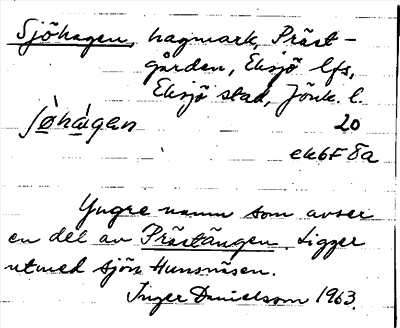 Sjöhagen, hagmark, Präst-
gården, Eksjö lfs,
Eksjö stad, Jönk. l.
20
ek6F8a
Yngre namn som avser
en del av Prästängen. Ligger
utmed sjön Hunsnäsen.
Inger Danielsson 1963.